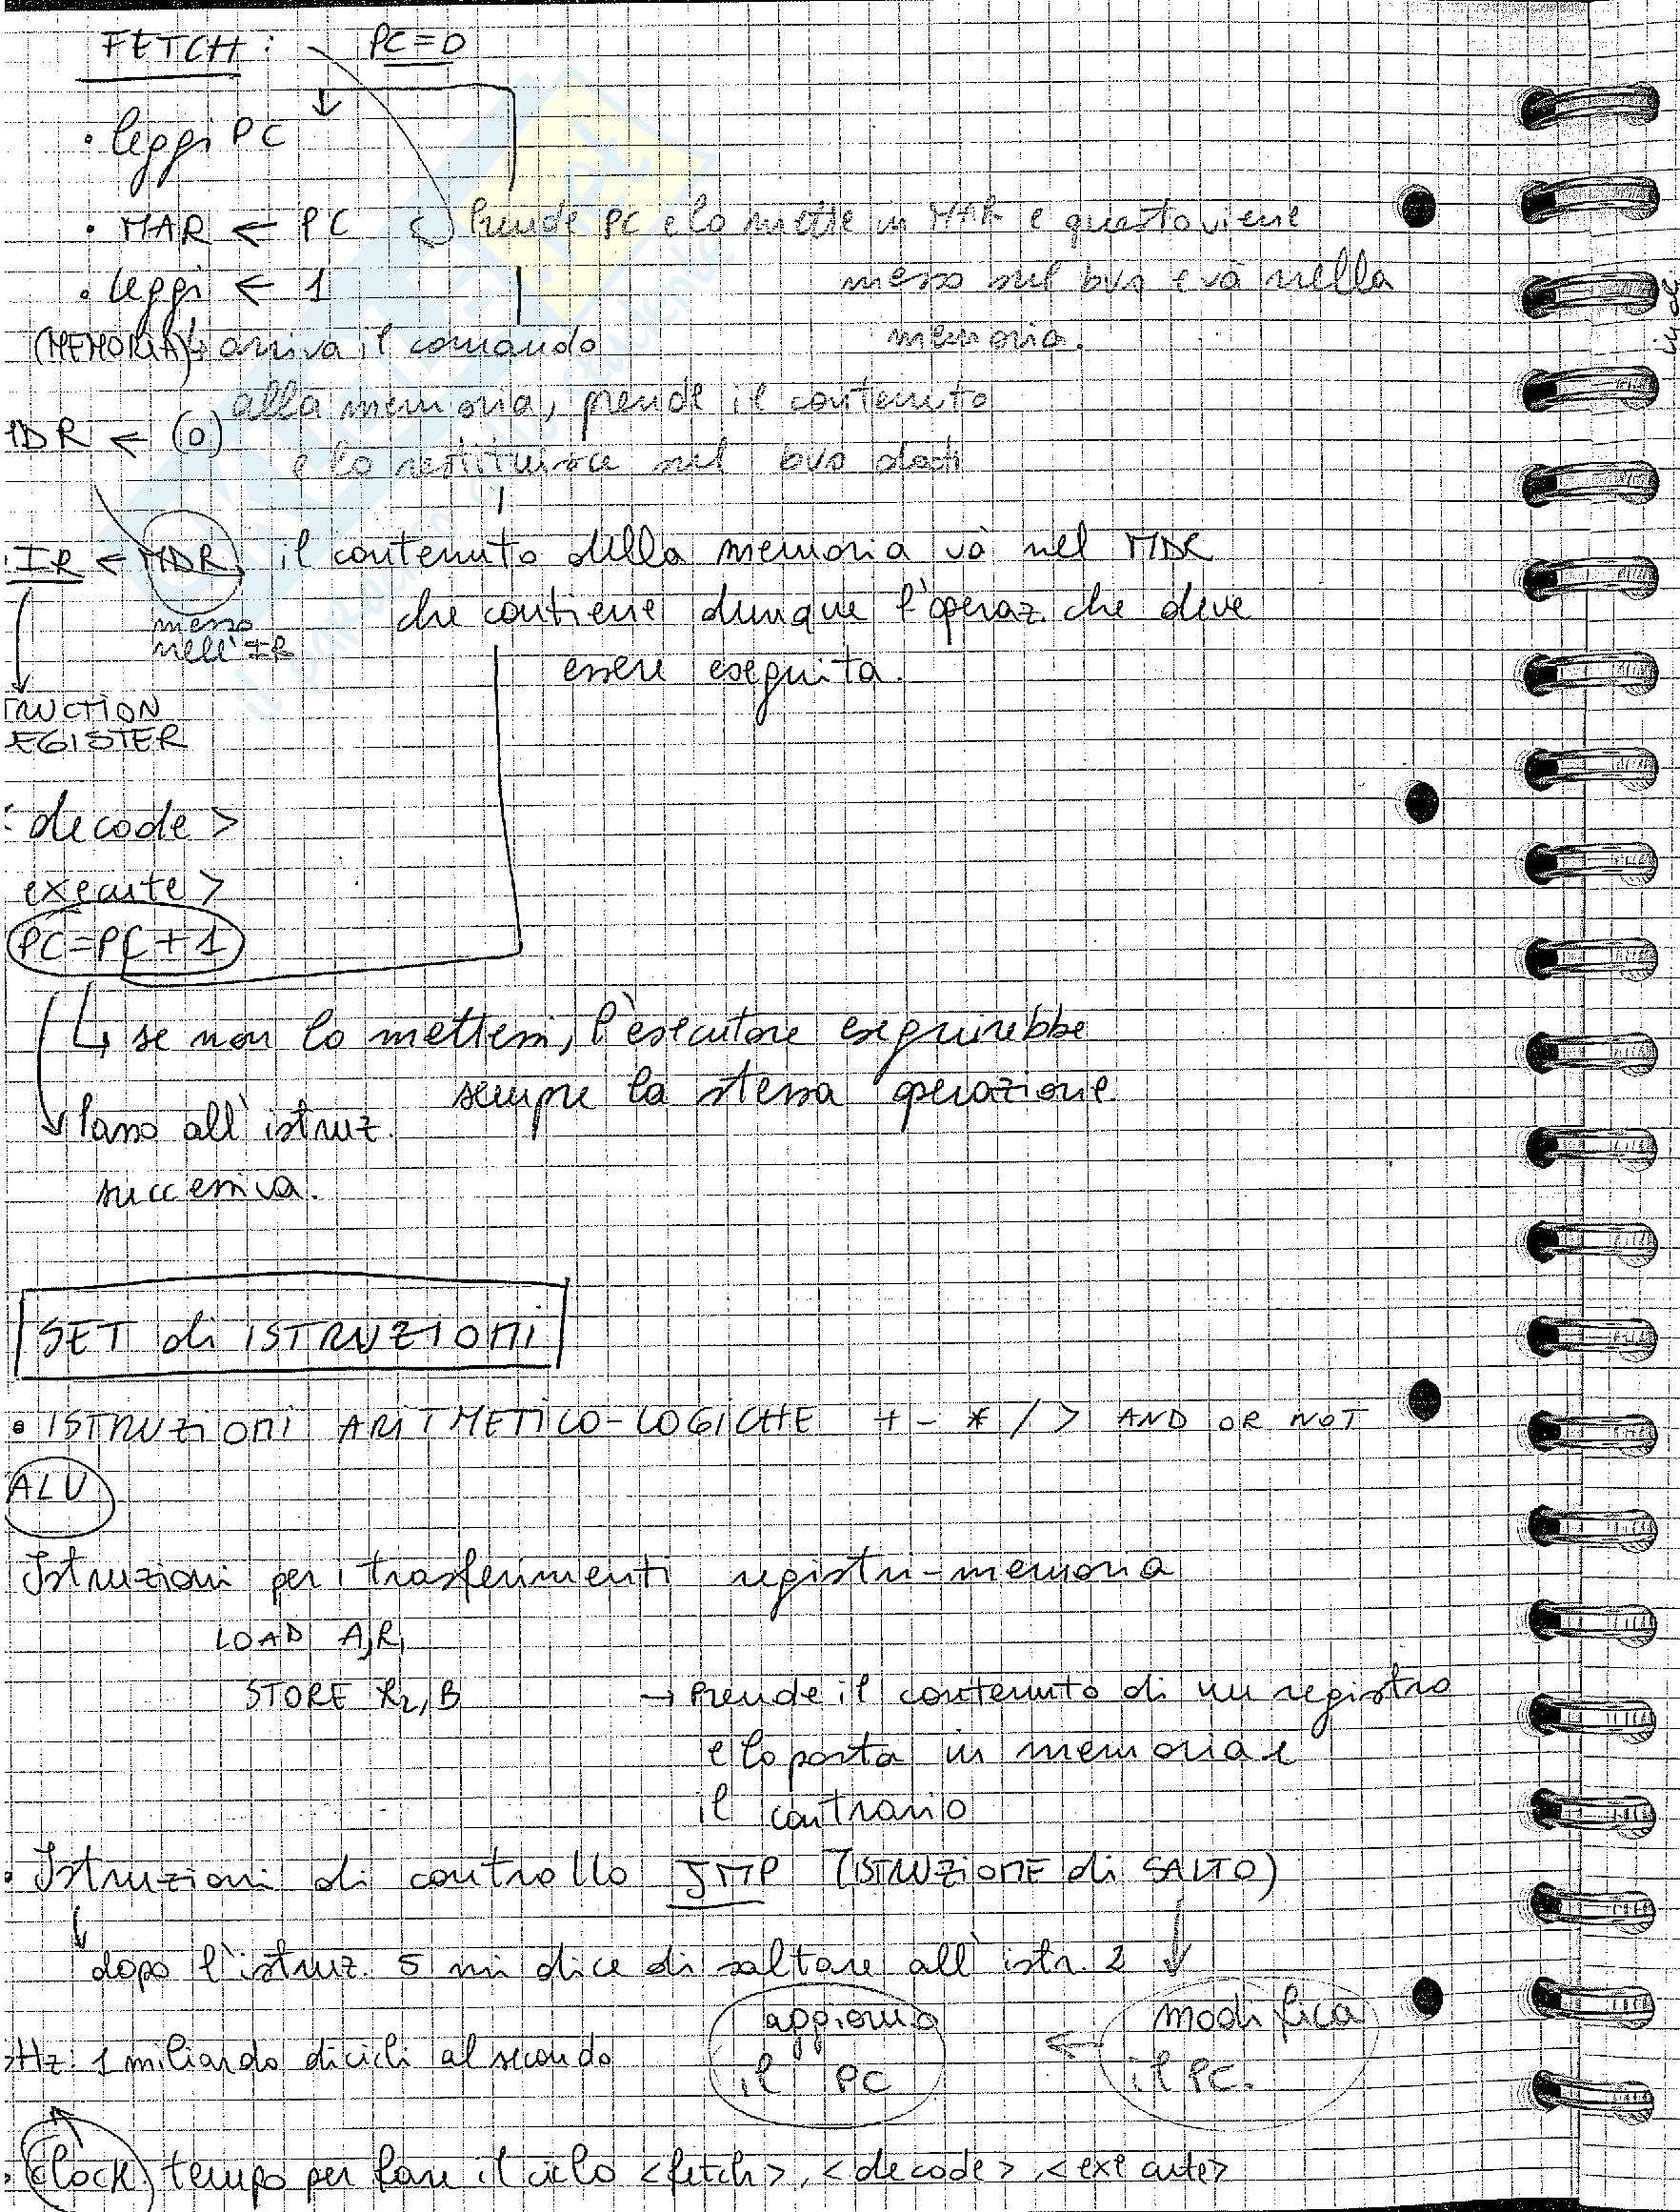 FETCH : PC=0
• leggi PC
• MAR ← PC Prende PC e lo mette in MAR e questo viene
messo sul bus e va nella
memoria.
• leggi ← 1
(MEMORIA) ↳ arriva il comando
alla memoria, prende il contenuto
e lo restituisce sul bus dati
DR ← (0)
IR ← MDR, il contenuto della memoria và nel MDR
che contiene dunque l'operaz. che deve
essere eseguita.
messo
nell'IR
TRUCTION
EGISTER
decode >
execute >
PC=PC+1
↳ se non lo mettessi, l'esecutore eseguirebbe
sempre la stessa operazione
Passo all'istruz.
successiva.
SET di ISTRUZIONI
• ISTRUZIONI ARITMETICO-LOGICHE + - * / > AND OR NOT
ALU
Istruzioni per i trasferimenti registri-memoria
LOAD A,R1
STORE R2,B → Prende il contenuto di un registro
e lo porta in memoria e
il contrario
• Istruzioni di controllo JMP (ISTRUZIONE di SALTO)
↳ dopo l'istruz. 5 mi dice di saltare all'istr. 2
modifica
il PC.
← aggiorno
il PC
Hz 1 miliardo di cicli al secondo
• Clock tempo per fare il ciclo <fetch>, <decode>, <execute>